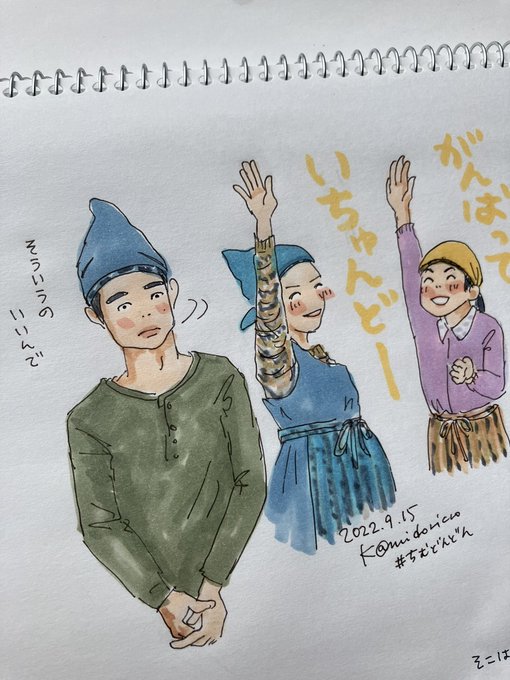 がんばって
いちゅんどー
そういうの
いいんで
2022.9.15
K@midoricco
#ちむどんどん
そこは